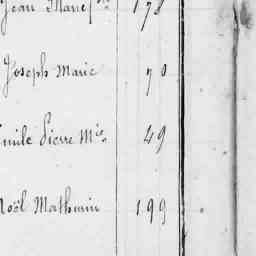 Jean Marie 178
Joseph Marie 70
Emile Pierre Mie 49
Noël Mathurin 199